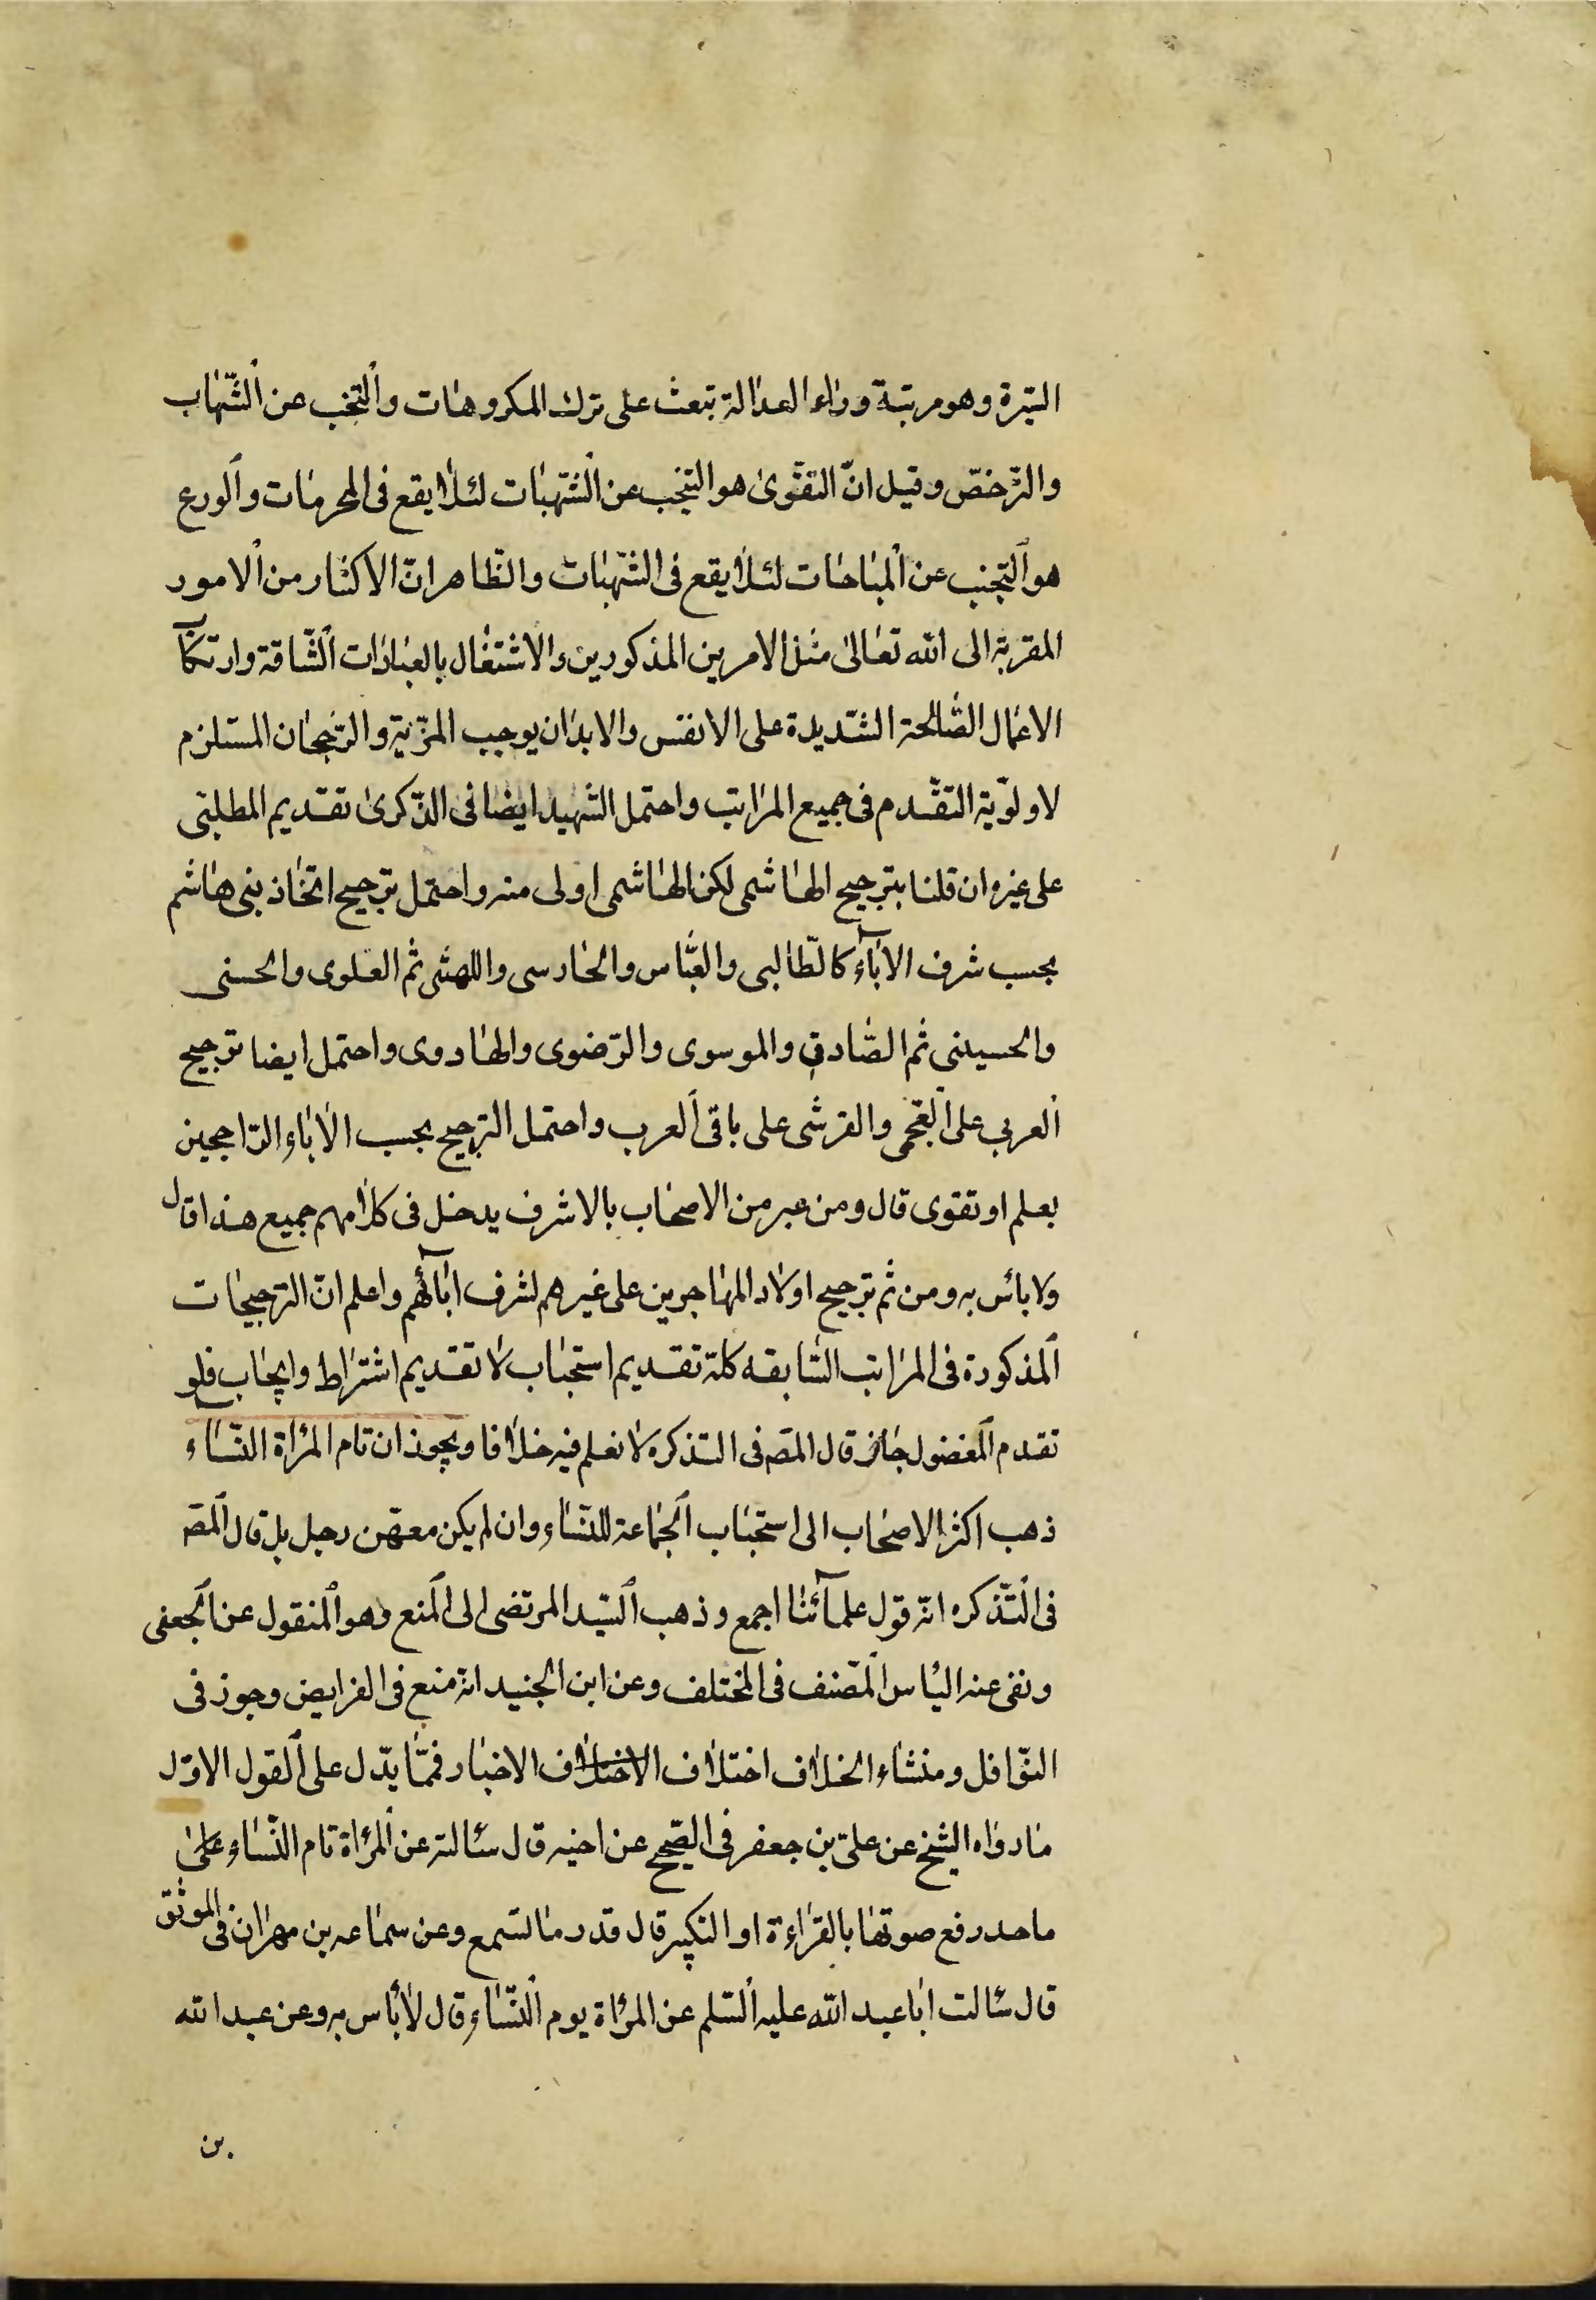 السّيرة وهو مرتبة وراء العدالة تبعث على ترك المكروهات والتجنب عن الشّبهات
والترخّص وقيل انّ التقوى هو التجنب عن الشّبهات لئلا يقع فى المحرمات والورع
هو التجنب عن المباحات لئلا يقع فى الشّبهات والظّاهر انّ الاكثار من الامور
المقربة الى الله تعالى مثل الامرين المذكورين والاشتغال بالعبادات الشّاقة وارتكاب
الاعمال الصّالحة الشّديدة على الانفس والابدان يوجب المزّية والرّجحان المستلزم
لاولوّية التقّدم فى جميع المراتب واحتمل الشّهيد ايضا فى الذّكرى تقديم المطلبّى
على غيره وان قلنا بترجيح الهاشمى لكن الهاشمى اولى منه واحتمل ترجيح اتخاذ بنى هاشم
بحسب شرف الاباء كالطّالبى والعبّاس والحارسى واللهبّى ثم العلوى والحسنى
والحسينى ثم الصّادق والموسوى والرّضوى والهادوى واحتمل ايضا ترجيح
العربى على العجمى والقرشى على باقى العرب واحتمل الترجيح بحسب الاباء الرّاجحين
بعلم او تقوى قال ومن عبر من الاصحاب بالاشرف يدخل فى كلامهم جميع هذا قال
ولا بائس به ومن ثم ترجيح اولاد المهاجرين على غيرهم لشرف ابائهم واعلم انّ الترجيحات
المذكورة فى المراتب السّابقه كلة تقديم استحباب لا تقديم اشتراط وايجاب فلو
تقدم المفضول جائز قال المصّ فى التذكره لا نعلم فيه خلافا ويجوز ان تام المرأة النّساء
ذهب اكثر الاصحاب الى استحباب الجماعة للنّساء وان لم يكن معهّن رجل بل قال المصّ
فى التّذكره انّه قول علمائنا اجمع وذهب السّيد المرتضى الى المنع وهو المنقول عن الجعفى
ونفى عنه الباس المّصنف فى المختلف وعن ابن الجنيد انه منع فى الفرايض وجوز فى
النّوافل ومنشاء الخلاف اختلاف الاختلاف الاخبار فممّا يدّل على القول الاوّل
ما رواه الشيخ عن علىّ بن جعفر فى الصّحيح عن اخيه قال سئالته عن المرأة تام النّساء على
ما حد رفع صوتها بالقراءة او التكبير قال قدر ما تسمع وعن سماعه بن مهران فى الموثّق
قال سئالت ابا عبد الله عليه السّلم عن المرأة يوم النّساء قال لا بأس به وعن عبد الله
بن